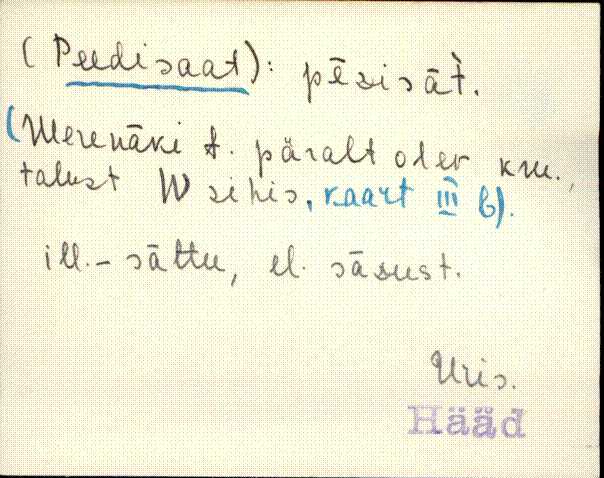 (Peedisaat): pēsisāt̀.
(Merenäki t. päralt olev km.,
talust W sihis, kaart III b).
ill. - sāttu, el. sāsust.
Uris.
Hääd